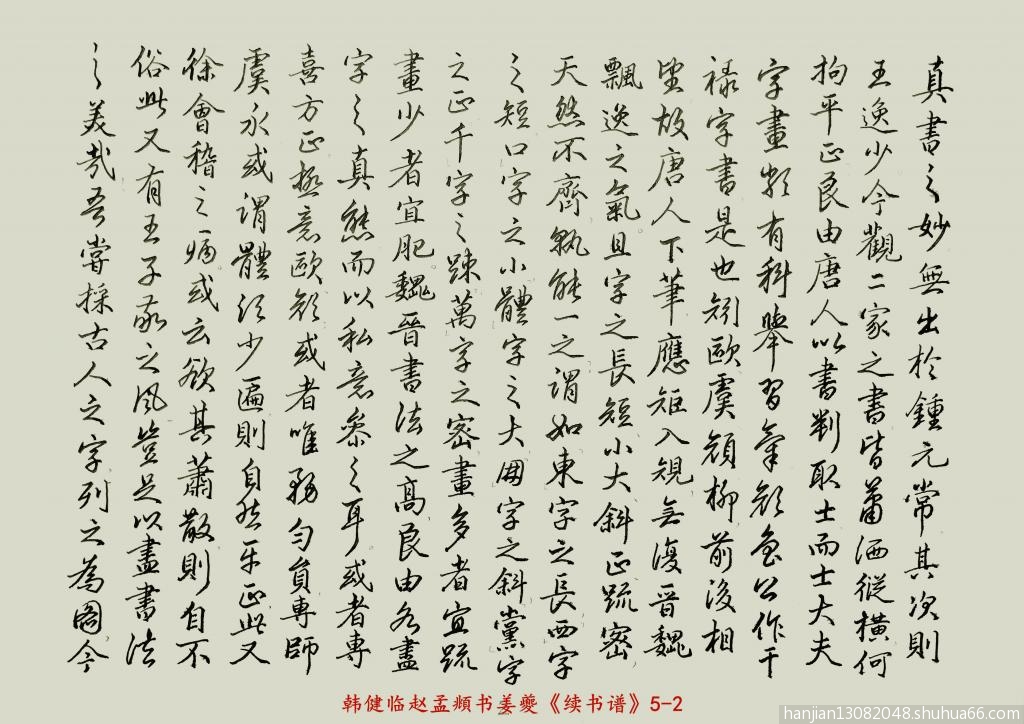 真書之妙無出於鍾元常其次則
王逸少今觀二家之書皆蕭洒縱橫何
拘平正良由唐人以書判取士而士大夫
字畫類有科舉習氣顏魯公作干
祿字書是也矧歐虞顏柳前後相
望故唐人下筆應矩入規無復晉魏
飄逸之氣且字之長短小大斜正疏密
天然不齊孰能一之謂如東字之長西字
之短口字之小體字之大朋字之斜黨字
之正千字之疎萬字之密畫多者宜疏
畫少者宜肥魏晉書法之高良由各盡
字之真態而以私意參之耳或者專
喜方正極意歐顏或者唯務勻員專師
虞永或謂體須少匾則自然平正此又
徐會稽之病或云欲其蕭散則自不
俗此又有王子敬之風豈足以盡書法
之美哉吾嘗採古人之字列之為圖今
韩健临赵孟頫书姜夔《续书谱》5-2
hanjian13082048.shuhua66.com